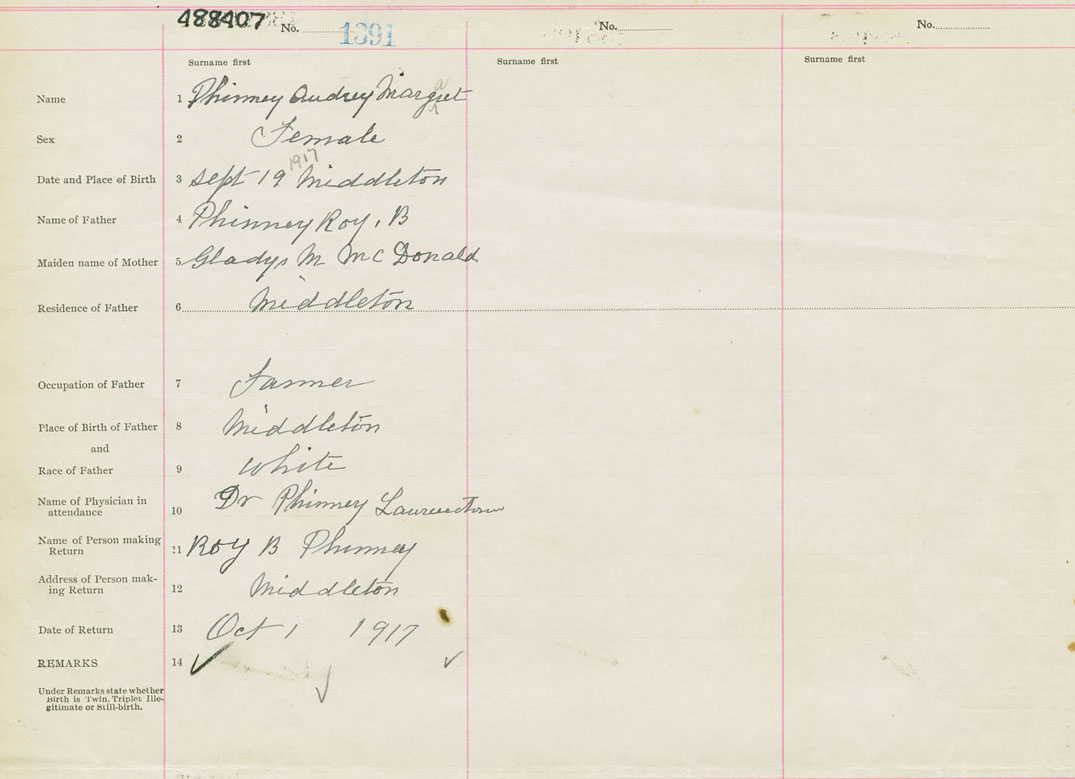 488407 No. 1391 No. No.
Surname first Surname first Surname first
Name 1 Phinney Audrey Margaret
Sex 2 Female
1917
Date and Place of Birth 3 Sept 19 Middleton
Name of Father 4 Phinney Roy, B
Maiden name of Mother 5 Gladys M McDonald
Residence of Father 6 Middleton
Occupation of Father 7 Farmer
Place of Birth of Father 8 Middleton
and
Race of Father 9 White
Name of Physician in
attendance 10 Dr Phinney Lawrencetown
Name of Person making
Return 11 Roy B Phinney
Address of Person mak-
ing Return 12 Middleton
Date of Return 13 Oct 1 1917
REMARKS 14
Under Remarks state whether
Birth is Twin, Triplet Ille-
gitimate or Still-birth.